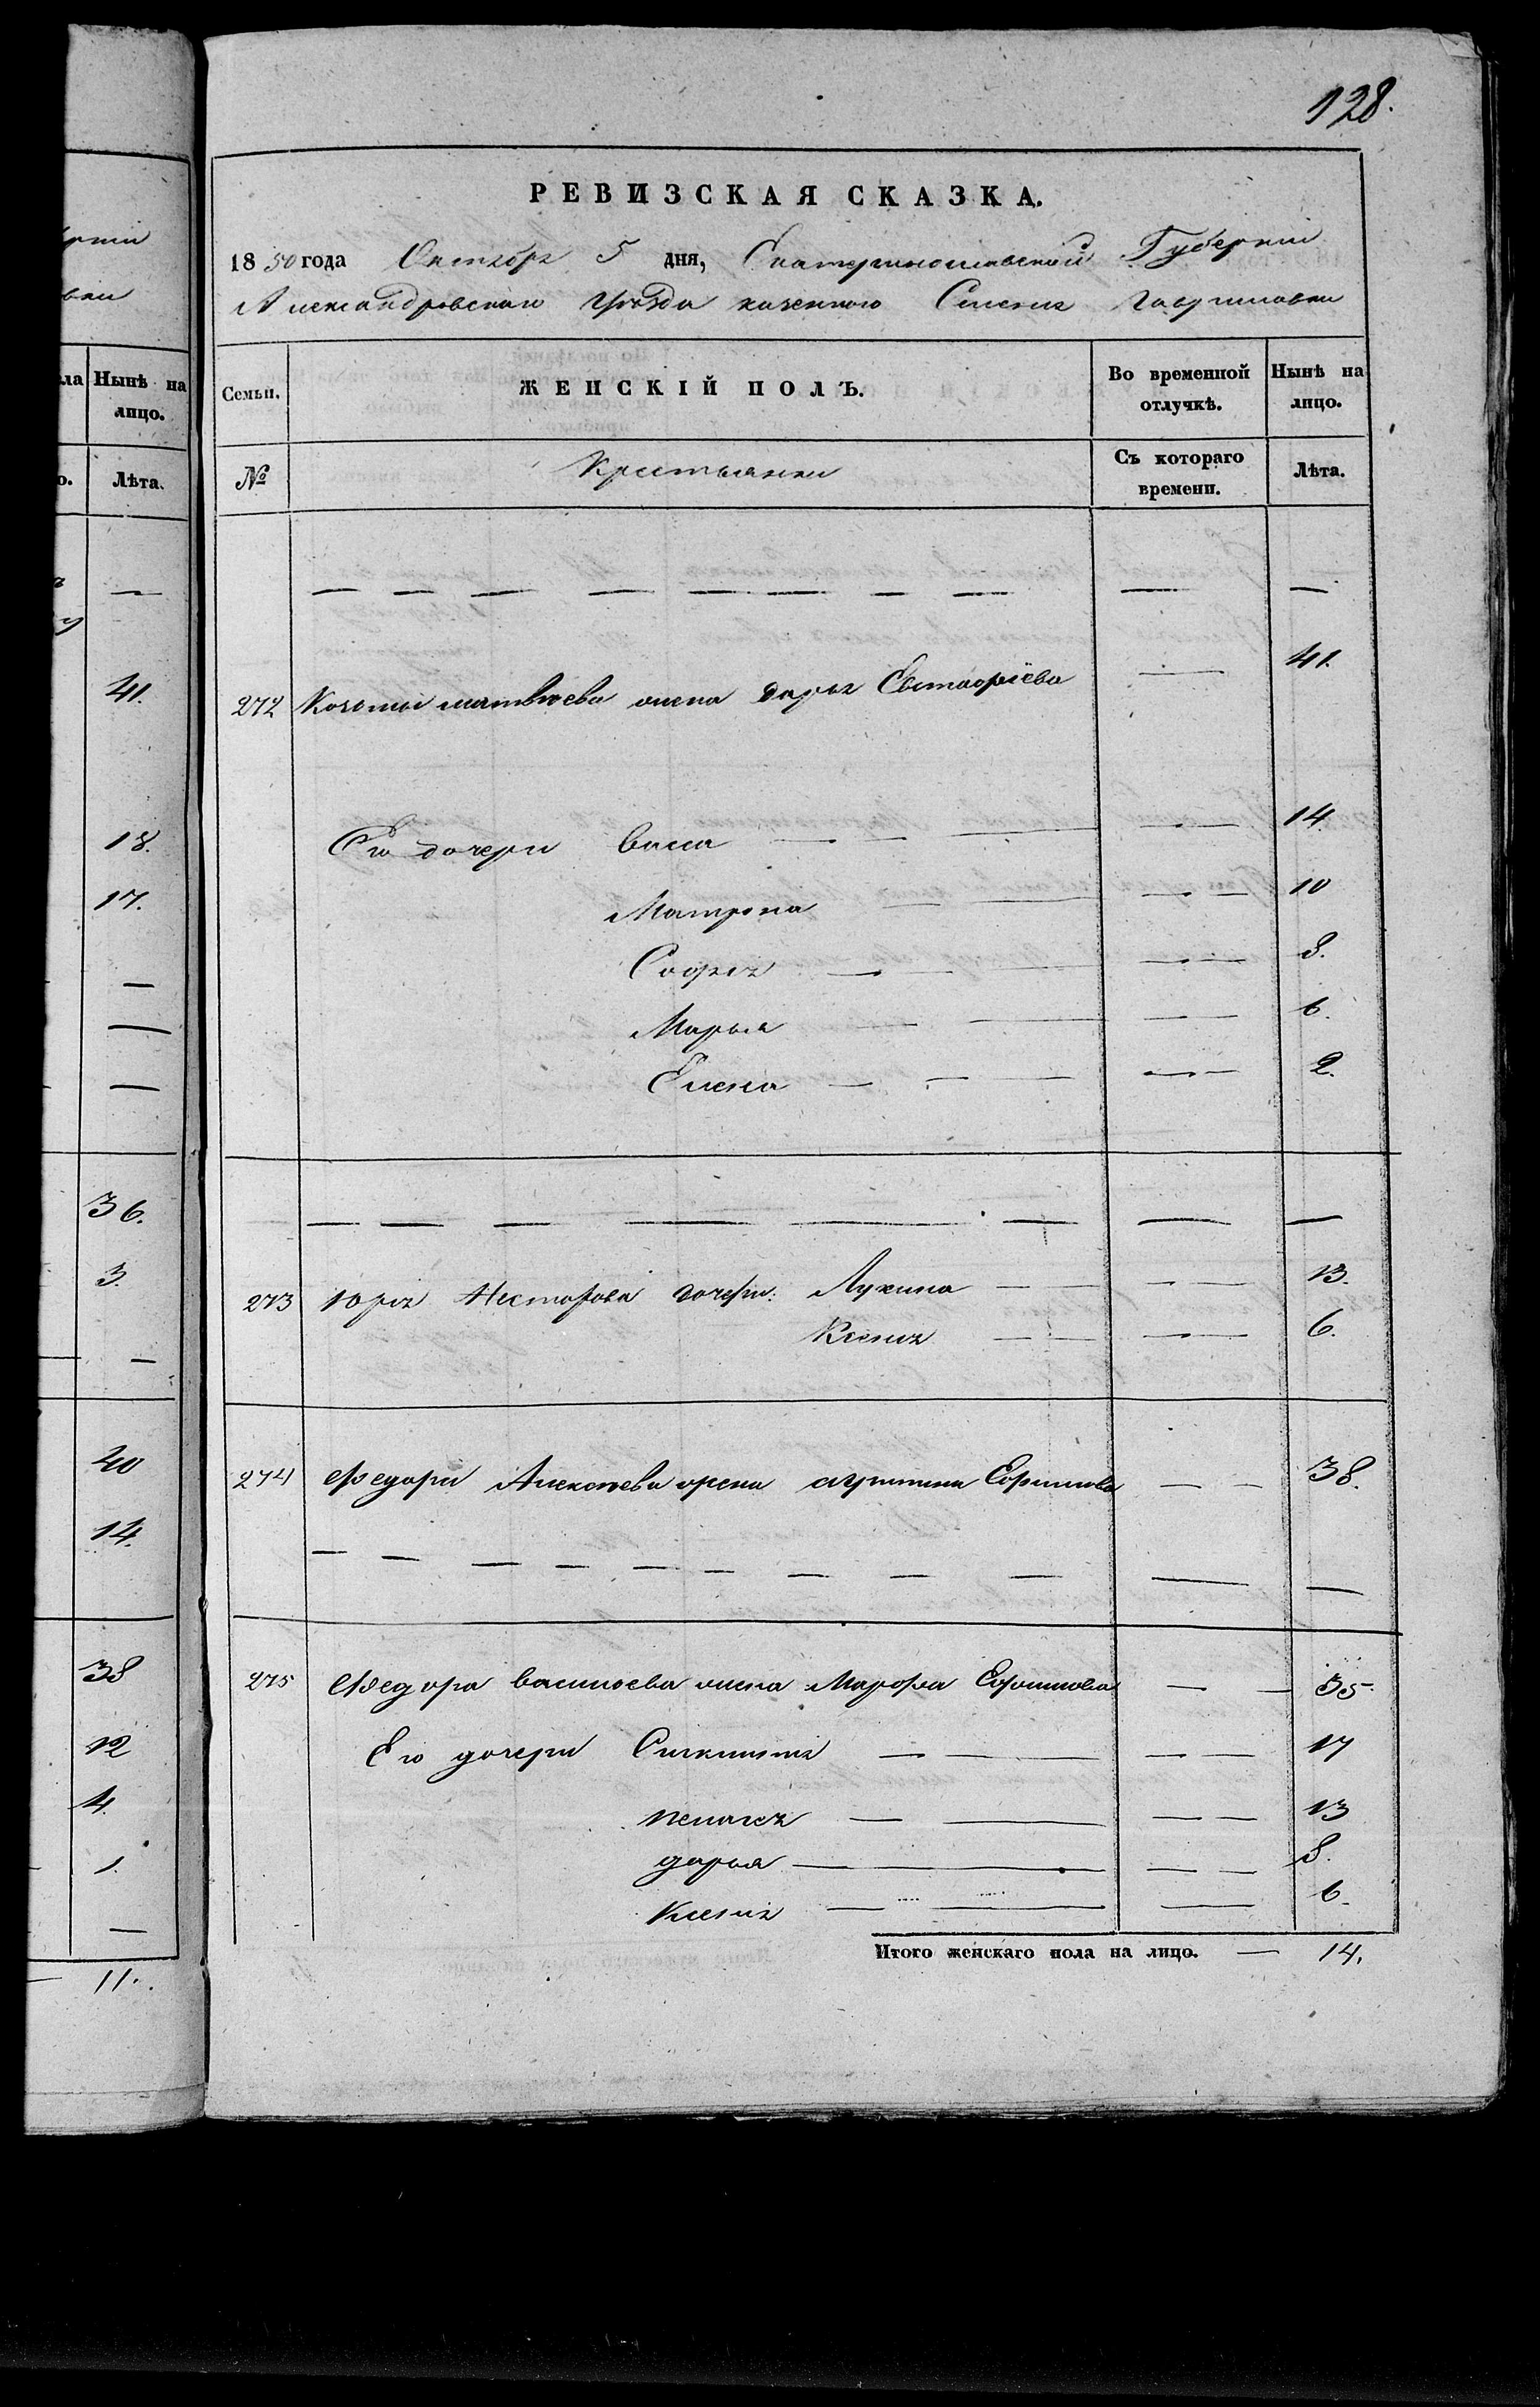 128.
РЕВИЗСКАЯ СКАЗКА.
1850 года Октября 5 дня, Екатеринославской Губерніи
Александровскаго Уѣзда казенного Селенія Гавриловки
Семьи. ЖЕНСКІЙ ПОЛЪ. Во временной отлучкѣ. Нынѣ на лицо.
№ Крестьянки Съ котораго времени. Лѣта.
— — — — — — — — — —
272 Козьмы матвѣева жена дарья Евстафіева — 41.
Его дочери васса — — — — — 14.
Матрона — — — — 10
Софія — — — — 8.
Марья — — — 6.
Елена — — — — — 2.
— — — — — — — —
273 Юрія Несторова дочери: Лукина — — — — 13.
Ксенія — — — — 6.
274 Федора Алексѣева жена Ефимова — — 38.
— — — — — — — — — — —
275 Федора василіева жена Марфа Ефимова — — 35.
Его дочери — — — — 17
пелагея — — — — 13
дарья — — — — — 8.
Ксенія — — — — 6.
Итого женскаго пола на лицо. — 14.
Нынѣ на лицо.
Лѣта.
—
41.
18.
17.
—
—
—
36.
3.
—
40
14.
38
12
4.
1.
—
11.